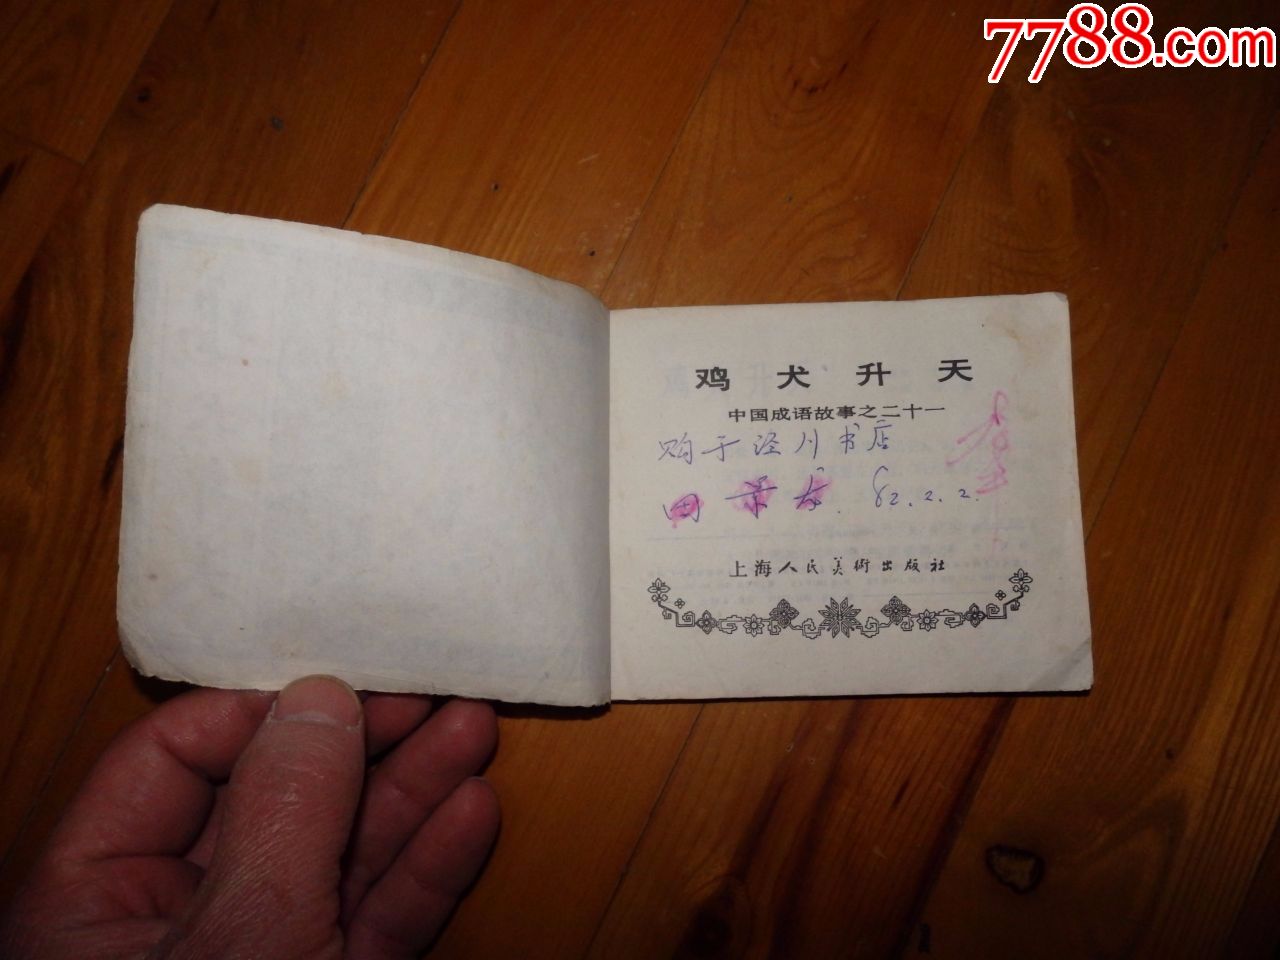 7788.com
鸡犬升天
中国成语故事之二十一
购于泾川书店
田景龙. 82.2.2.
上海人民美術出版社